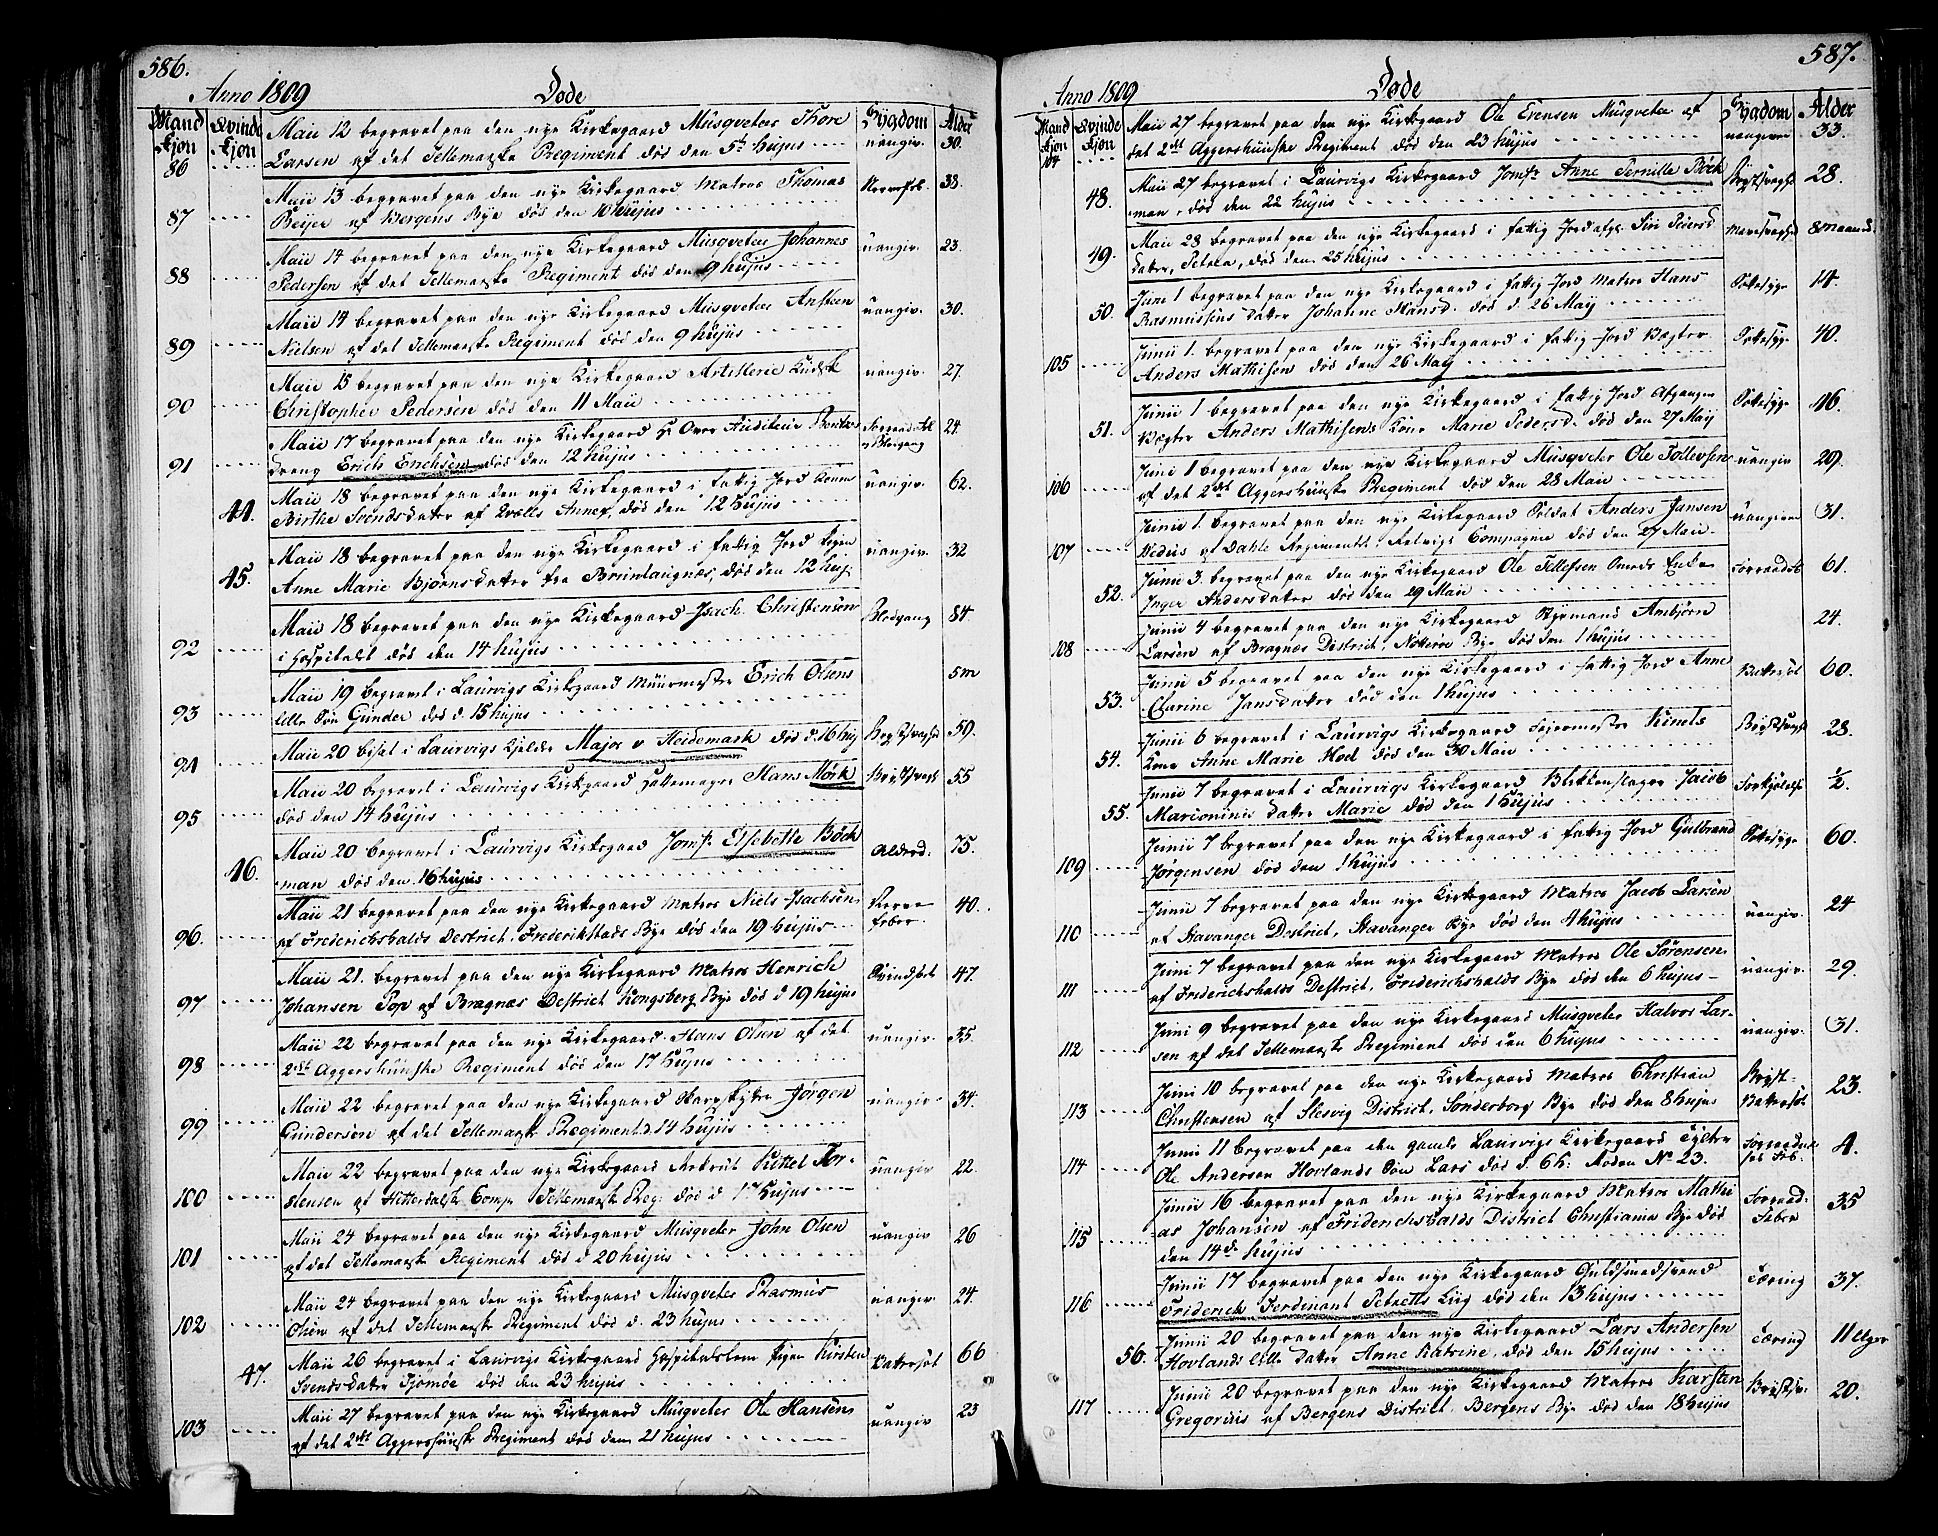 586.
Anno 1809 Døde
Mand Kjøn Qvinde Kjøn Sygdom Alder
86 Maii 12 begravet paa den nye Kirkegaard Musqveteer Thore uangiv. 30.
Larsen af det Tellemarske Regiment død den 5te hujus
87 Maii 13 begravet paa den nye Kirkegaard Matros Thomas 38.
Beyer af Bergens Bye død den 10 hujus
88 Maii 14 begravet paa den nye Kirkegaard Musqveteer Johannes uangiv. 23.
Pedersen af det Tellemarske Regiment død den 9 hujus
89 Maii 14 begravet paa den nye Kirkegaard Musqveteer Ansteen uangiv. 30.
Nielsen af det Tellemarske Regiment død den 9 hujus
90 Maii 15 begravet paa den nye Kirkegaard Artillerie Kudsk uangiv. 27.
Christopher Pedersen død den 11 Maii
91 Maii 17 begravet paa den nye Kirkegaard Hr Over Auditeur 24.
Dreng Erich Erichsen død den 12 hujus
44. Maii 18 begravet paa den nye Kirkegaard i fattig Jord Konen uangiv. 62.
Birthe Svendsdater af Qvælle Annex, død den 12 hujus
45. Maii 18 begravet paa den nye Kirkegaard i fattig Jord Pigen uangiv. 32
Anne Marie Bjørnsdater fra Brunlaugnæs, død den 12 huj.
92 Maii 18 begravet paa den nye Kirkegaard Isach Christensen Blodgang 84.
i Hospitalet død den 14 hujus
93 Maii 19 begravet i Laurvigs Kirkegaard Muurmester Erich Olsens 5 m
lille Søn Gunder død d. 15 hujus
94 Maii 20 bisat i Laurvigs Kjelder Major v Heidemark død d. 16 huj Brystsvaghed 59.
95 Maii 20 begravet i Laurvigs Kirkegaard Hattemager Hans Mørk Brystsvagh 55
død den 14 hujus
46. Maii 20 begravet i Laurvigs Kirkegaard Jomfr. Elsebethe Böck Alderd. 75.
man død den 16 hujus
96. Maii 21 begravet paa den nye Kirkegaard Matros Niels Isachsen Nerve 40.
af Frederichshalds Destrict, Frederikstads Bye død den 19 hujus Feber
97 Maii 21. begravet paa den nye Kirkegaard Matros Henrich Svindsot 47.
Johansen Top af Bragnæs Destrict Kongsberg Bye død d 19 hujus
98 Maii 22 begravet paa den nye Kirkegaard Hans Olsen af det uangiv. 35.
2det Aggershuuske Regiment død den 17 hujus
99 Maii 22 begravet paa den nye Kirkegaard Skarpskytter Jörgen uangiv. 34.
Gundersen af det Tellemarske Regiment d. 14 hujus
100 Maii 22 begravet paa den nye Kirkegaard Rekrut Kittel Tor- uangiv 22.
stensen af Hitterdalske Comp. Tellemarsk Reg: død d 17 hujus
101 Maii 24 begravet paa den nye Kirkegaard Musqveter John Olsen uangiv 26
af det Tellemarske Regiment død d 20 hujus
102 Maii 24 begravet paa den nye Kirkegaard Musqveter Rasmus uangiv. 24.
Olsen af det Tellemarske Regiment død d. 23 hujus
47. Maii 26 begravet i Laurvigs Kirkegaard Hospitalslem Pigen Kirsten Vatersot 66
Svendsdater Tjømøe død den 23 hujus
103 Maii 27 begravet paa den nye Kirkegaard Musqveter Ole Hansen uangiv 23
af det 2det Aggershuuske Regiment død den 21 hujus
587.
Anno 1809 Døde
Mand Kjøn Qvinde Kjøn Sygdom Alder
104 Maii 27 begravet paa den nye Kirkegaard Ole Evensen Musqveteer af uangiven 33.
det 2det Aggershuuske Regiment død den 23 hujus
48. Maii 27 begravet i Laurvigs Kirkegaard Jomfr. Anne Pernille Böck Brystsvaghd 28.
man, død den 22 hujus
49. Maii 28 begravet paa den nye Kirkegaard i fattig Jord Siri Peiersd 8 maaned.
dater, Petrea, død den 25 hujus
50. Juni 1 begravet paa den nye Kirkegaard i fattig Jord Matros Hans 14.
Rasmussens dater Johanne Hansd. død d. 26 Maij
105 Junii 1. begravet paa den nye Kirkegaard i fattig Jord Vægter 40.
Anders Mathisen død den 26 Maij
51. Junii 1 begravet paa den nye Kirkegaard i fattig Jord Afgangen 46.
Vægter Anders Mathisens Kone Marie Pedersd. død den 27 Maij
106 Junii 1 begravet paa den nye Kirkegaard Musqveter Ole Tollevsen uangiv 29.
af det 2det Aggershuuske Regiment død den 28 Maii
107 Junii 1. begravet paa den nye Kirkegaard Soldat Anders Jansen uangiven 31.
af Dahls Regiment, Compagnie død den 27 Maii
52. Junii 3 begravet paa den nye Kirkegaard Ole Tellefsen Enke 61.
Inger Andersdater død den 29 Maii
108 Junii 4 begravet paa den nye Kirkegaard Styrmand Ambjörn 24.
Larsen af Bragnæs District, Nøtterøe Bye død den 1 hujus
53. Junii 5 begravet paa den nye Kirkegaard i fattig Jord Anne Vatersot 60.
Carine Jansdater død den 1 hujus
54. Junii 6 begravet i Laurvigs Kirkegaard Feiermester Kinels Brystsvagh 28.
Kone Anne Marie Hod død den 30 Maii
55. Junii 7 begravet i Laurvigs Kirkegaard Blikkenslager Jacob Forkjølelse ½.
Marioninis dater Marie død den 1 hujus
109 Junii 7 begravet paa den nye Kirkegaard i fattig Jord Gulbrand 60.
Jørgensen død den 1 hujus
110 Junii 7 begravet paa den nye Kirkegaard Matros Jacob Larsen uangiv. 24
af Stavanger District, Stavanger Bye død den 4 hujus
111 Junii 7 begravet paa den nye Kirkegaard Matros Ole Sørensen uangiv. 29.
af Friderichshalds Destrict, Friderichshalds Bye død den 6 hujus
112 Junii 9 begravet paa den nye Kirkegaard Musqveter Halvor Lar- uangiv. 31.
sen af det Tellemarske Regiment død den 6 hujus
113 Junii 10 begravet paa den nye Kirkegaard Matros Christian Bryst- 23.
Christensen af Slesvig District, Sonderborg Bye død den 8 hujus Vatersot.
114 Junii 11 begravet paa den gamle Laurvigs Kirkegaard 4.
Ole Andersen Hovlands Søn Lars død d. 6 h: No 23.
115 Junii 16 begravet paa den nye Kirkegaard Matros Mathi Forraad- 35
as Johansen af Friderichshalds District Christiania Bye død Feber
den 14de hujus
116 Junii 17 begravet paa den nye Kirkegaard Guldsmedsvend Tæring 37.
Friderich Ferdinant Petretts Liig død den 13 hujus
56. Junii 20 begravet paa den nye Kirkegaard Lars Andersen Tæring 11 Uger
Hovlands lille dater Anne Katrine, død den 15 hujus
117 Junii 20 begravet paa den nye Kirkegaard Matros Karsten Brystsv. 20.
Gregoriis af Bergens District Bergens Bye død den 18 hujus